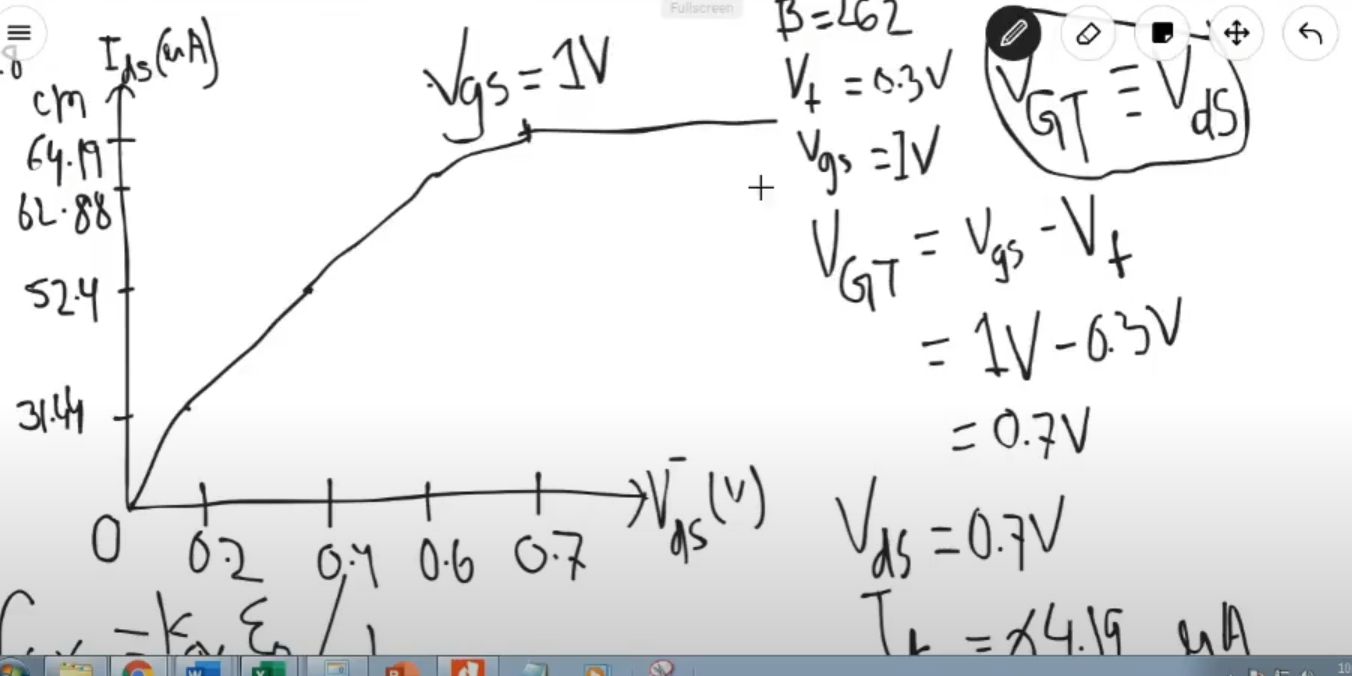 Fullscreen
I_ds (uA)
cm
64.19
62.88
52.4
31.44
0
0.2 0.4 0.6 0.7
V_ds (v)
Vgs = 1V
β = 262
V_t = 0.3V
Vgs = 1V
V_GT = V_ds
V_GT = Vgs - V_t
= 1V - 0.3V
= 0.7V
V_ds = 0.7V
= 64.19 uA
10